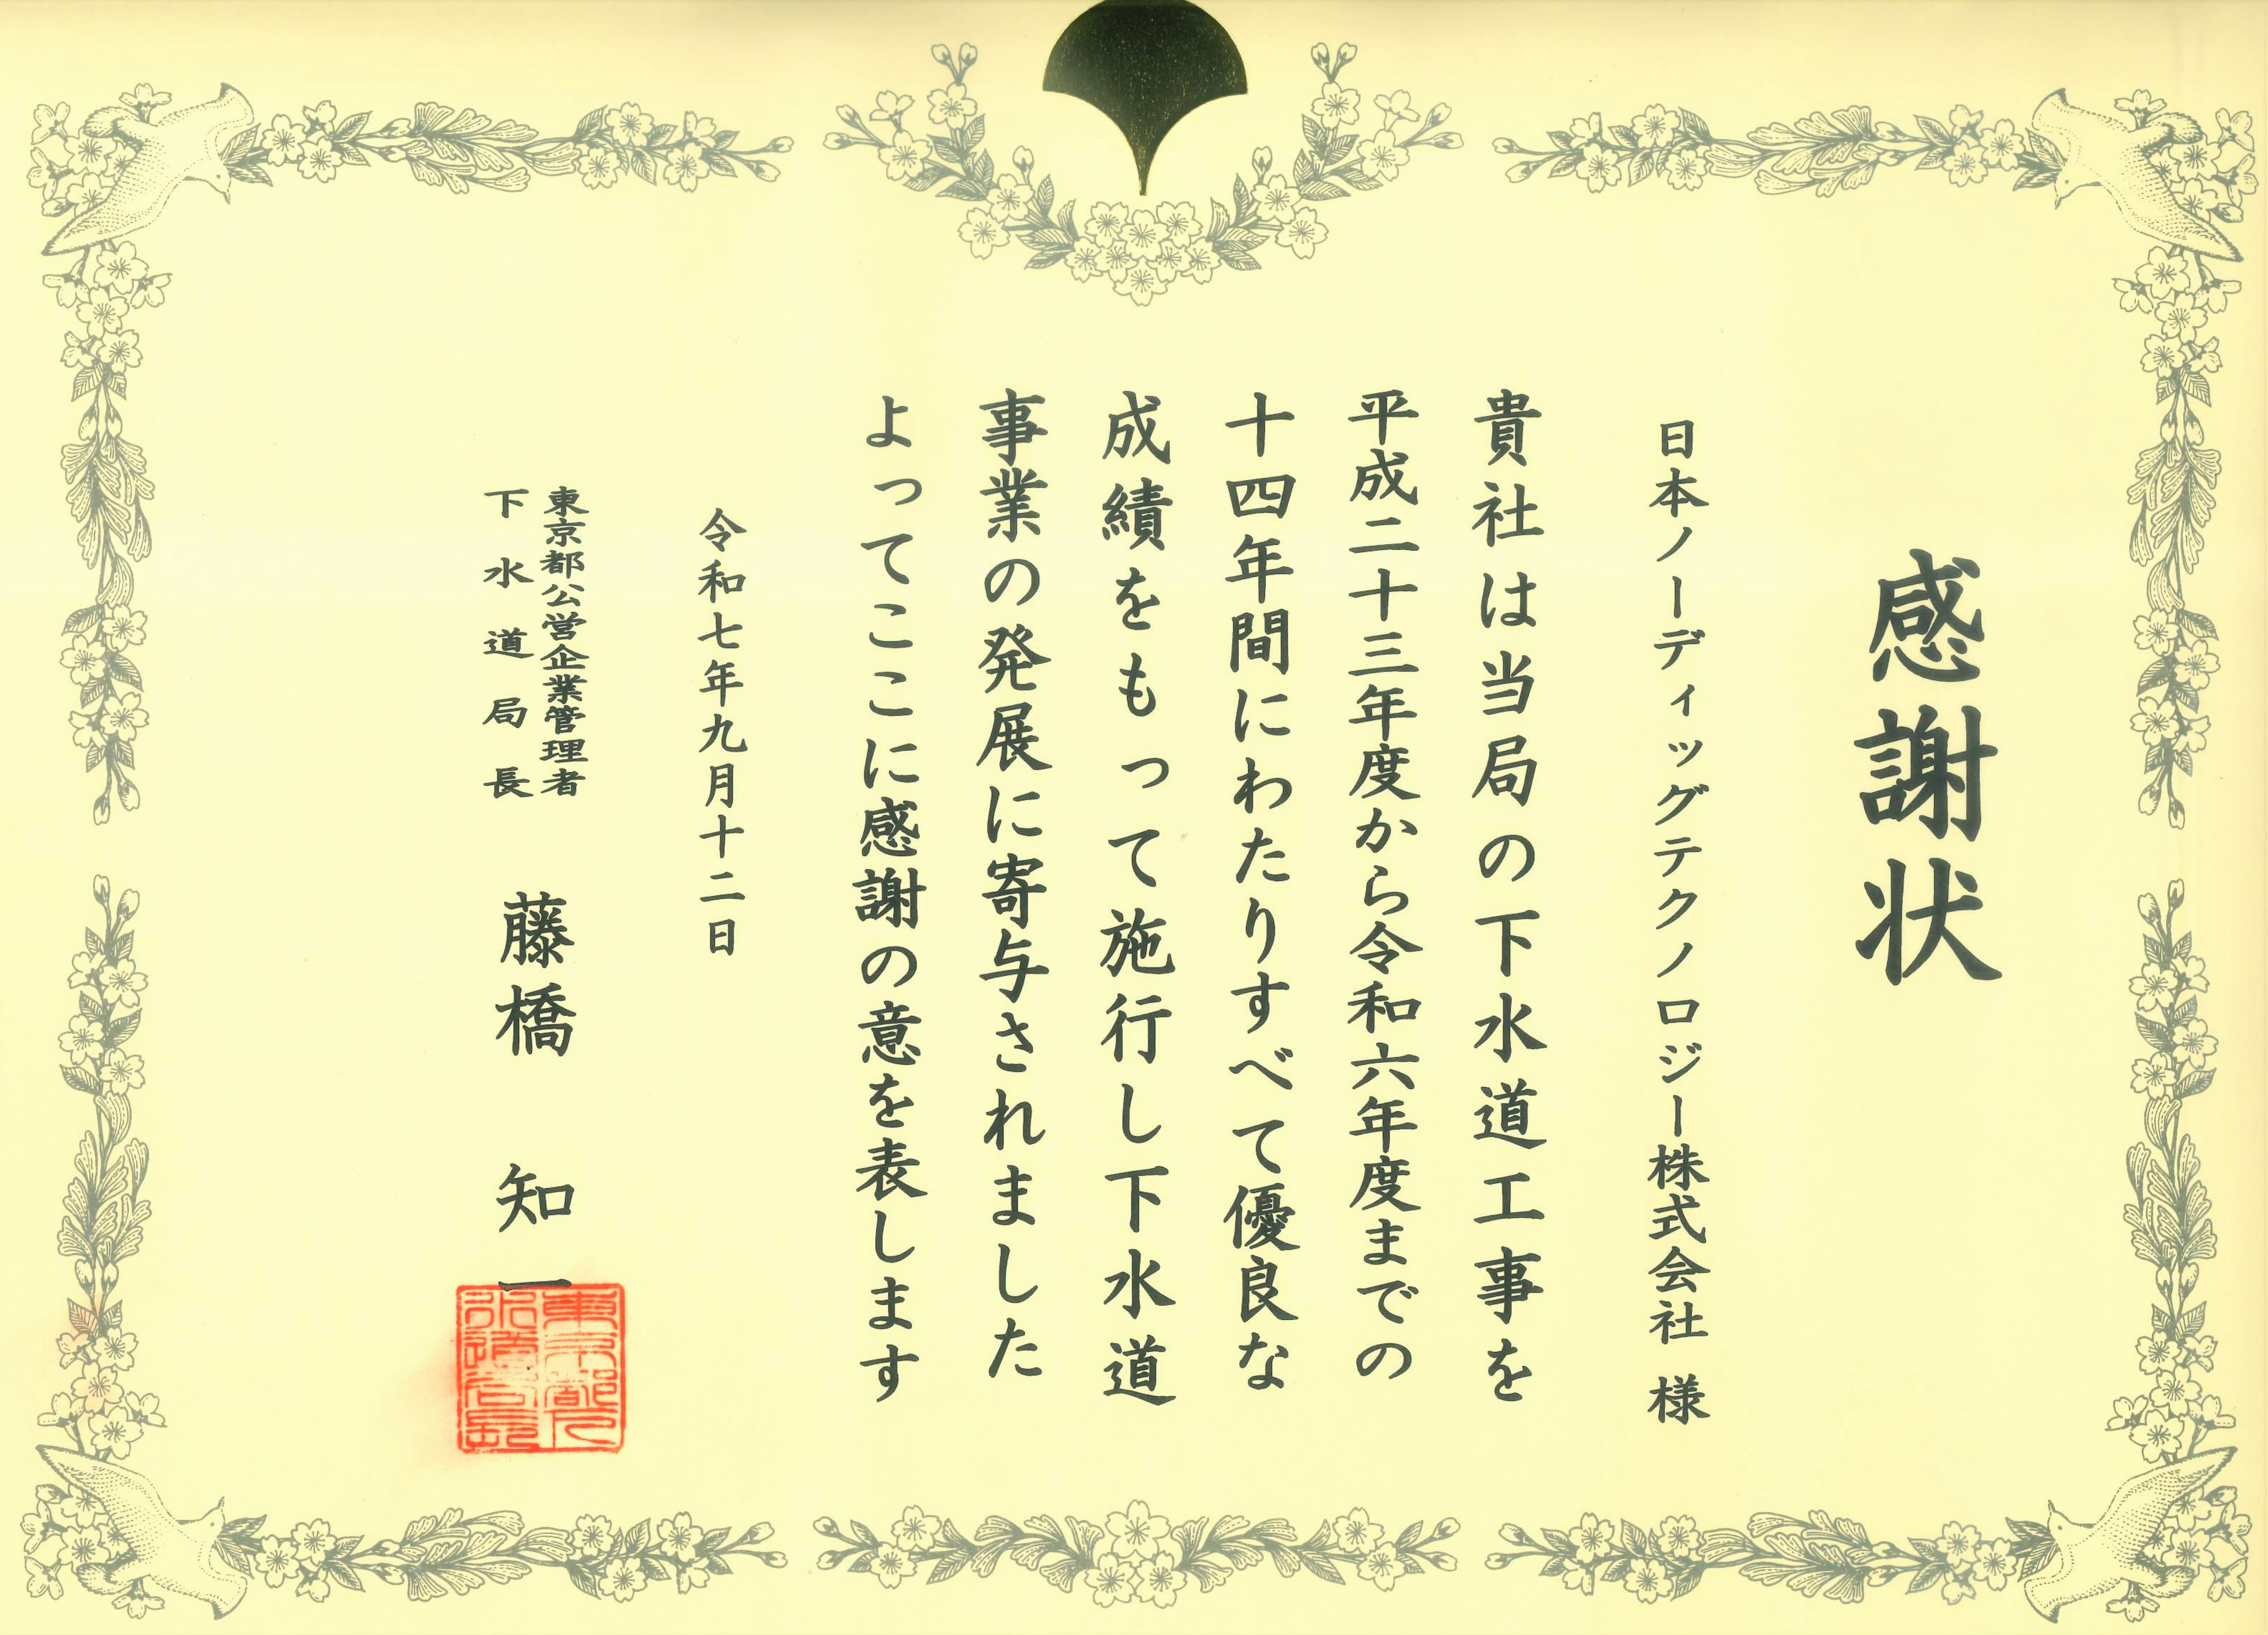 感謝状
日本ノーディッグテクノロジー株式会社 様
貴社は当局の下水道工事を
平成二十三年度から令和六年度までの
十四年間にわたりすべて優良な
成績をもって施行し下水道
事業の発展に寄与されました
よってここに感謝の意を表します
令和七年九月十二日
東京都公営企業管理者
下水道局長
藤橋 知一
東京都下
水道局長